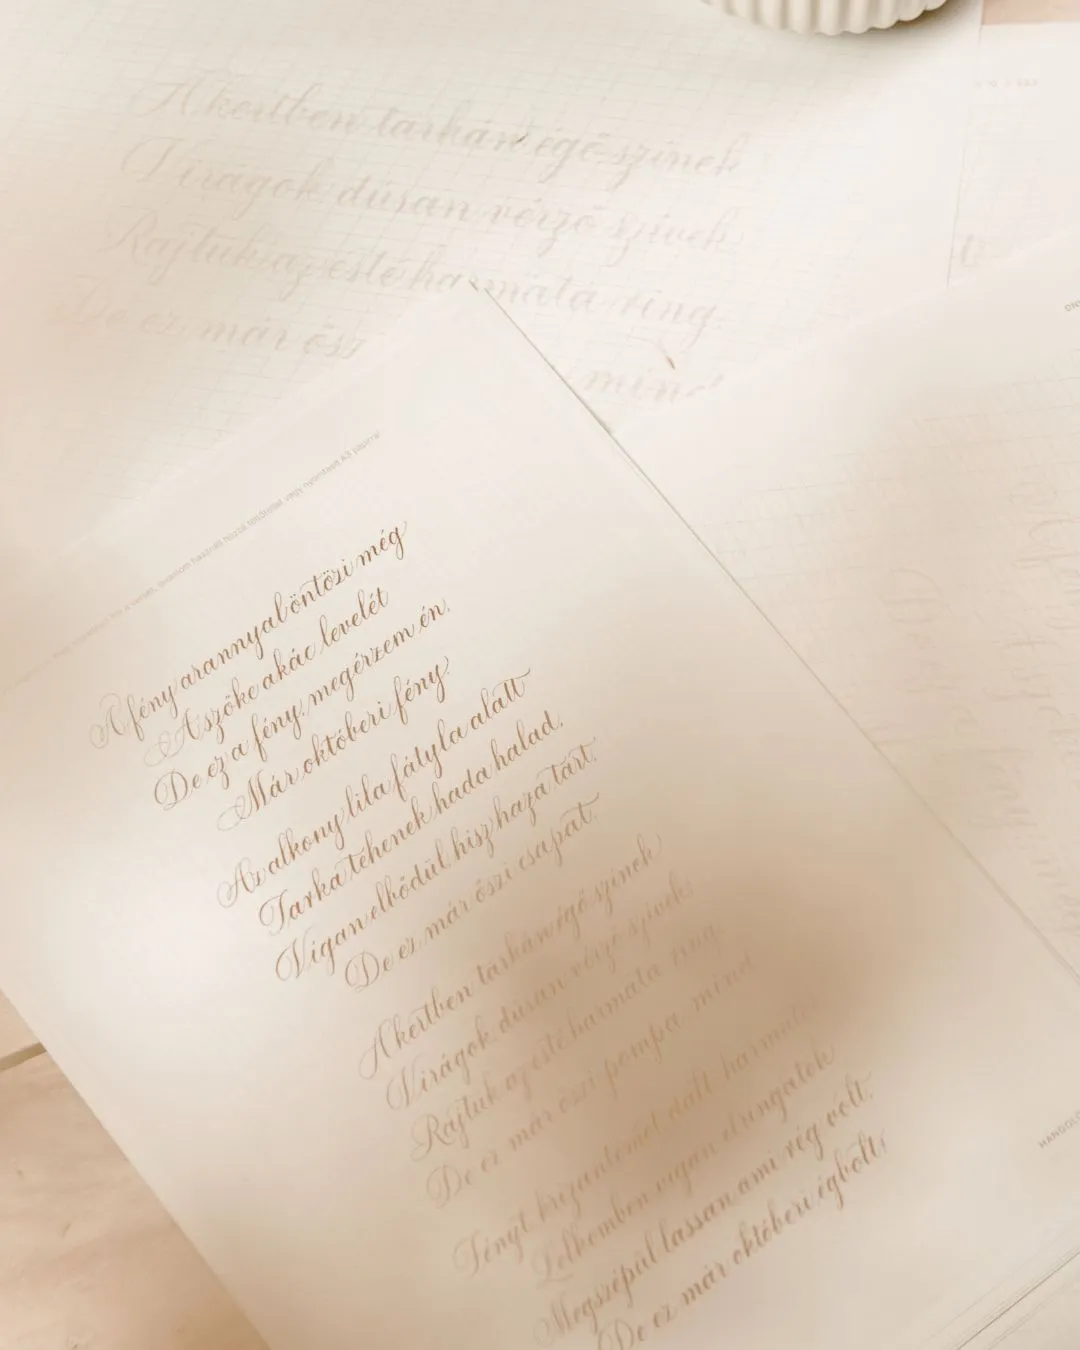 A kertben tarkán égő színek
Virágok dúsan vérző szívek
Rajtuk az esté harmata ring
De ez már ősz
mind
A fény arannyal öntözi még
A szőke akác levelét
De ez a fény, megérzem én,
Már októberi fény.
Az alkony lila fátyla alatt
Tarka tehenek hada halad,
Vígan elbődül hisz haza tart,
De ez már őszi csapat.
A kertben tarkán égő színek
Virágok dúsan vérző szívek
Rajtuk az esté harmata ring
De ez már őszi pompa mind
Fényt krizantémot dalt harmatot
Lelkemben vígan elringatok
Megszépül lassan ami rég volt,
De ez már októberi égbolt.
HANGOL